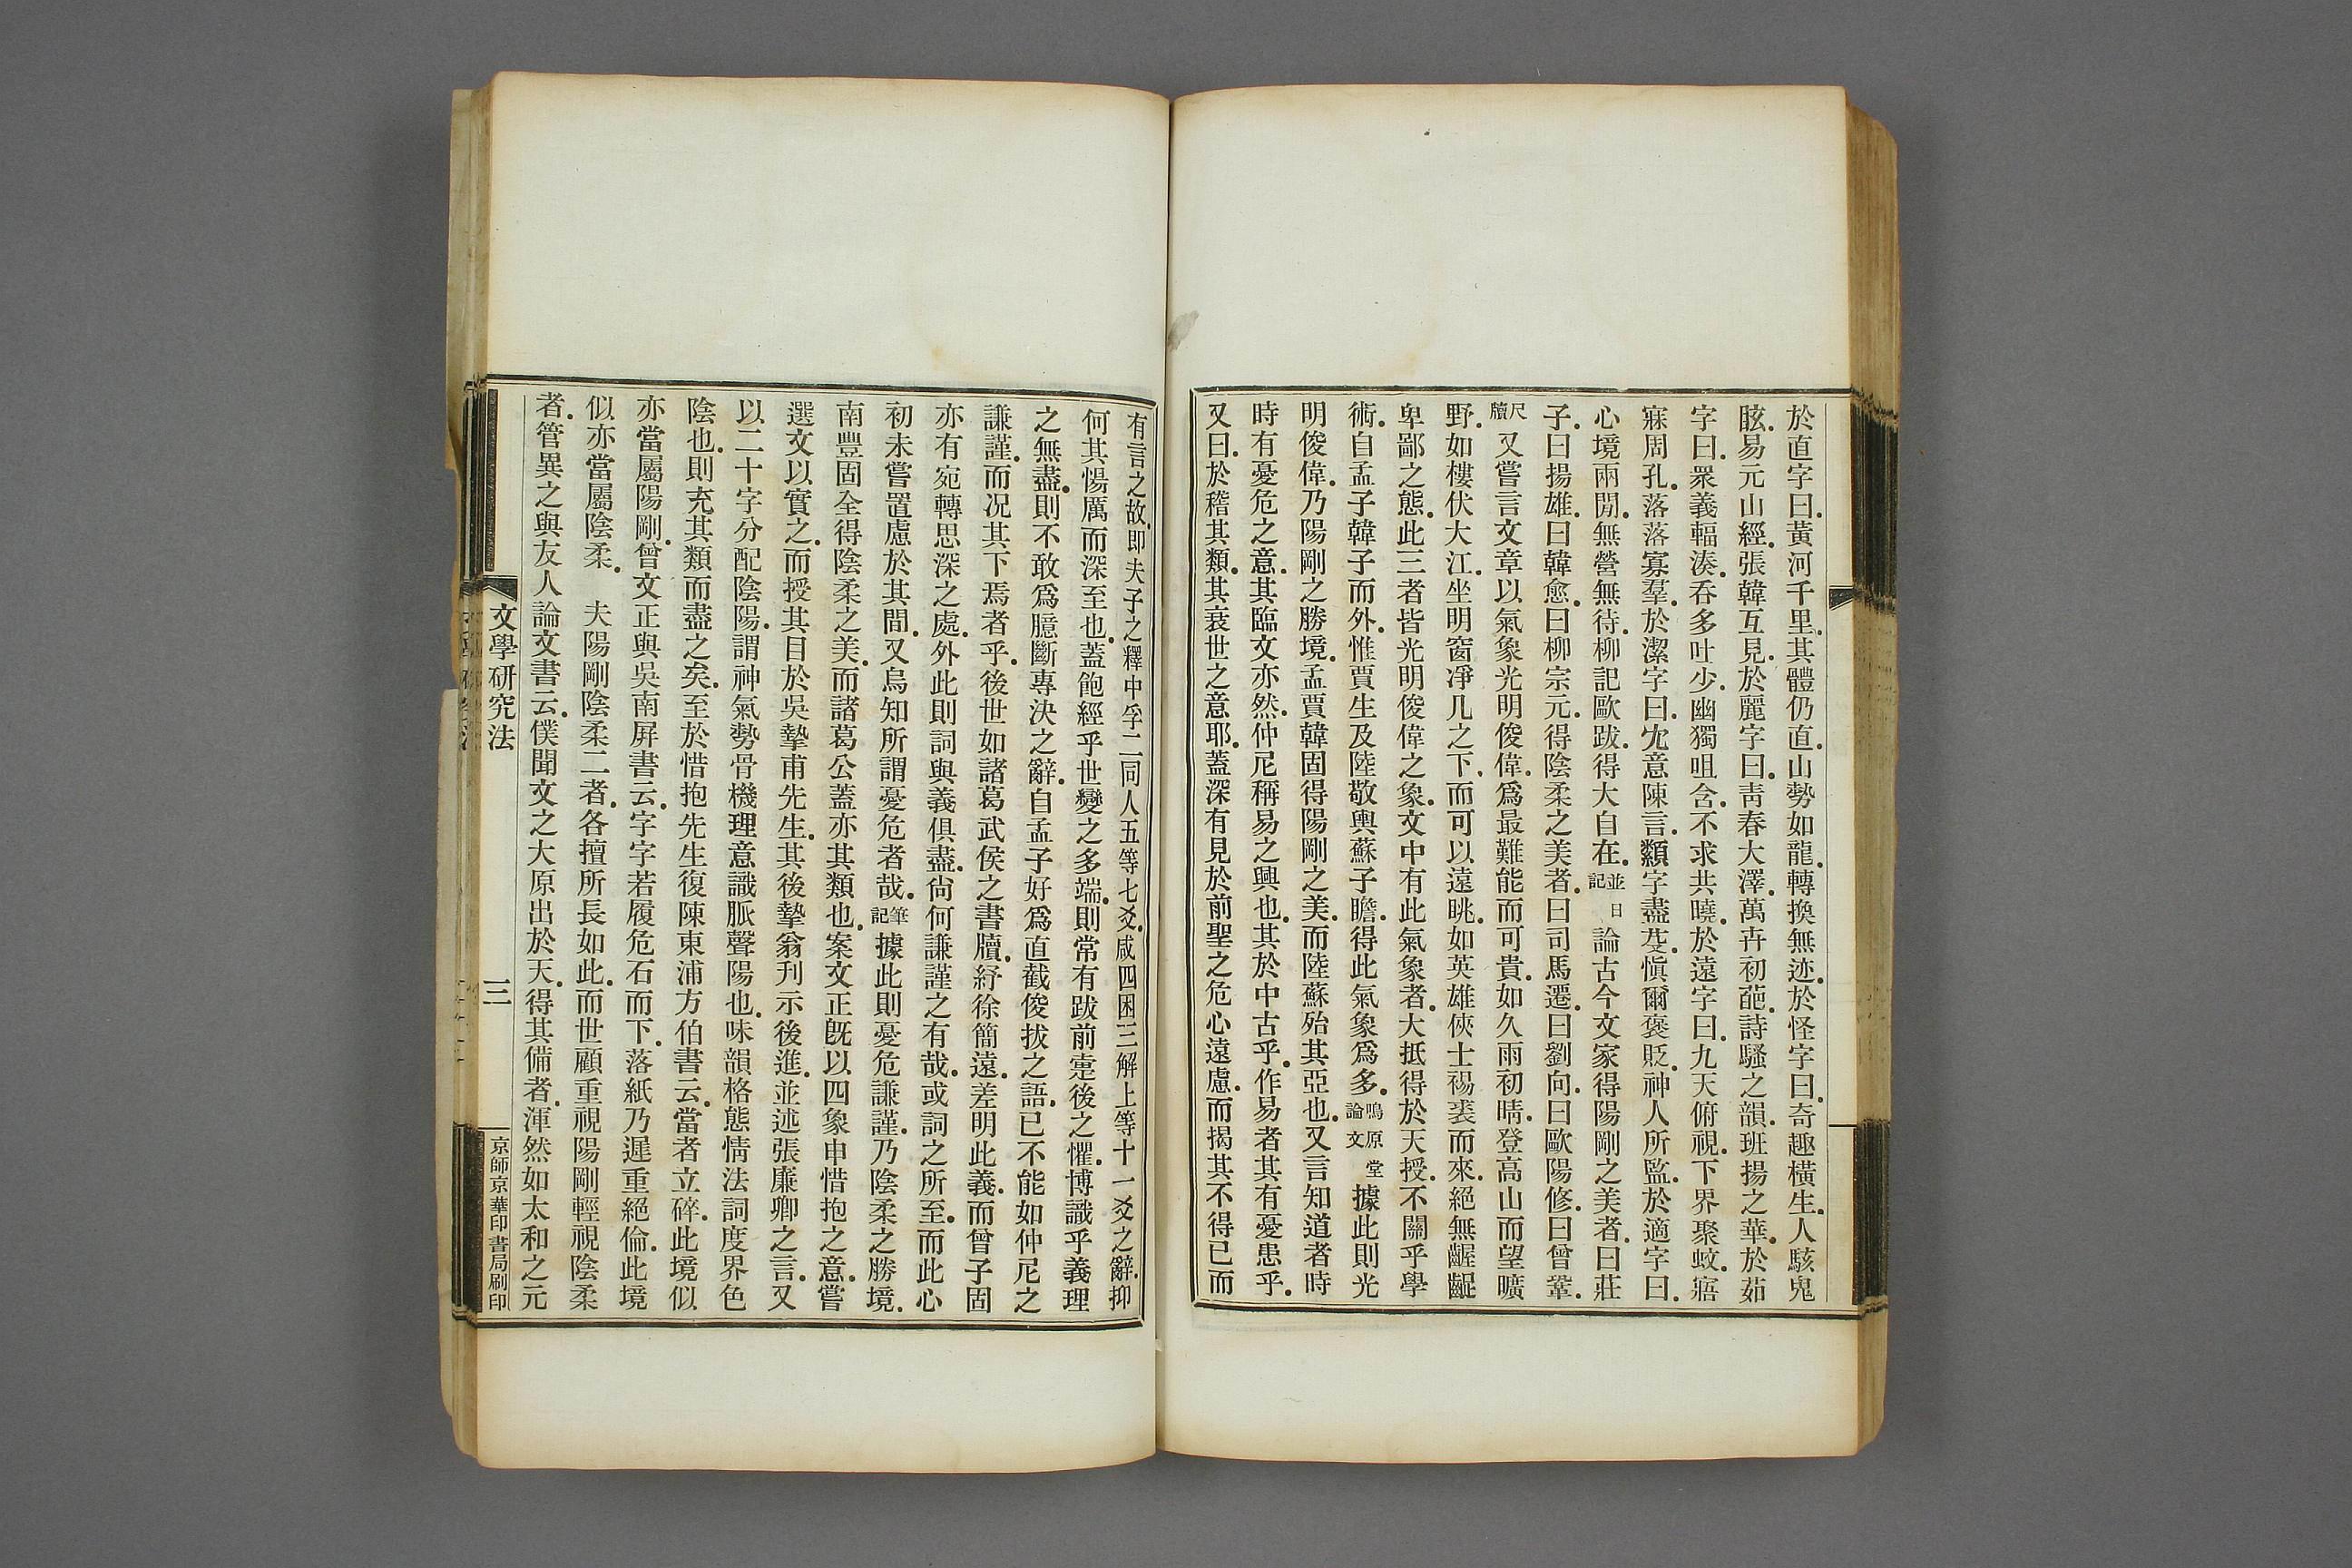 於直字曰．黃河千里．其體仍直．山勢如龍．轉換無迹．於怪字曰．奇趣橫生．人駭鬼
眩．易元山經．張韓互見．於麗字曰．靑春大澤．萬卉初葩．詩騷之韻．班揚之華．於茹
字曰．衆義輻湊．吞多吐少．幽獨咀含．不求共曉．於遠字曰．九天俯視．下界聚蚊．寤
寐周孔．落落寡羣．於潔字曰．宂意陳言．纇字盡芟．愼爾褒貶．神人所監．於適字曰．
心境兩閒．無營無待．柳記歐跋．得大自在．並日記 論古今文家得陽剛之美者．曰莊
子．曰揚雄．曰韓愈．曰柳宗元．得陰柔之美者．曰司馬遷．曰劉向．曰歐陽修．曰曾鞏．
尺牘 又嘗言文章以氣象光明俊偉．爲最難能而可貴．如久雨初晴．登高山而望曠
野．如樓伏大江．坐明窗淨几之下．而可以遠眺．如英雄俠士裼裘而來．絕無齷齪
卑鄙之態．此三者皆光明俊偉之象．文中有此氣象者．大抵得於天授．不關乎學
術．自孟子韓子而外．惟賈生及陸敬輿蘇子瞻．得此氣象爲多．鳴原堂論文 據此則光
明俊偉．乃陽剛之勝境．孟賈韓固得陽剛之美．而陸蘇殆其亞也．又言知道者時
時有憂危之意．其臨文亦然．仲尼稱易之興也．其於中古乎．作易者其有憂患乎．
又曰．於稽其類．其衰世之意耶．蓋深有見於前聖之危心遠慮．而揭其不得已而
有言之故．卽夫子之釋中孚二同人五等七爻．咸四困三解上等十一爻之辭．抑
何其惕厲而深至也．蓋飽經乎世變之多端．則常有跋前疐後之懼．博識乎義理
之無盡．則不敢爲臆斷專決之辭．自孟子好爲直截俊拔之語．已不能如仲尼之
謙謹．而况其下焉者乎．後世如諸葛武侯之書牘．紓徐簡遠．差明此義．而曾子固
亦有宛轉思深之處．外此則詞與義俱盡．尙何謙謹之有哉．或詞之所至．而此心
初未嘗置慮於其間．又烏知所謂憂危者哉．筆記 據此則憂危謙謹．乃陰柔之勝境．
南豐固全得陰柔之美．而諸葛公蓋亦其類也．案文正旣以四象申惜抱之意．嘗
選文以實之．而授其目於吳摯甫先生．其後摯翁刋示後進．並述張廉卿之言．又
以二十字分配陰陽．謂神氣勢骨機理意識脈聲陽也．味韻格態情法詞度界色
陰也．則充其類而盡之矣．至於惜抱先生復陳東浦方伯書云．當者立碎．此境似
亦當屬陽剛．曾文正與吳南屛書云．字字若履危石而下．落紙乃遲重絕倫．此境
似亦當屬陰柔． 夫陽剛陰柔二者．各擅所長如此．而世顧重視陽剛輕視陰柔
者．管異之與友人論文書云．僕聞文之大原出於天．得其備者．渾然如太和之元
文學研究法
三
京師京華印書局刷印